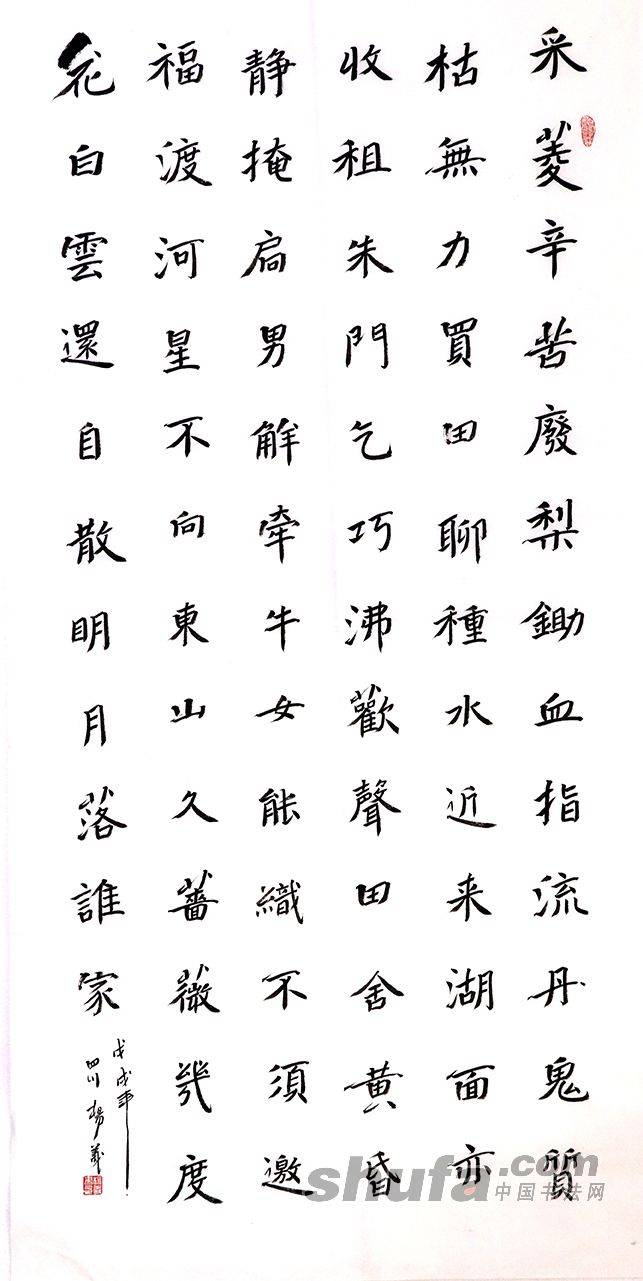 采菱辛苦廢梨鋤血指流丹鬼質
枯無力買田聊種水近来湖面亦
收租朱門乞巧沸歡聲田舍黄昏
静掩扃男解牽牛女能織不須邀
福渡河星不向東山久薔薇幾度
花白雲還自散明月落誰家
戊戌年
四川楊義
shufa.com
中国书法网